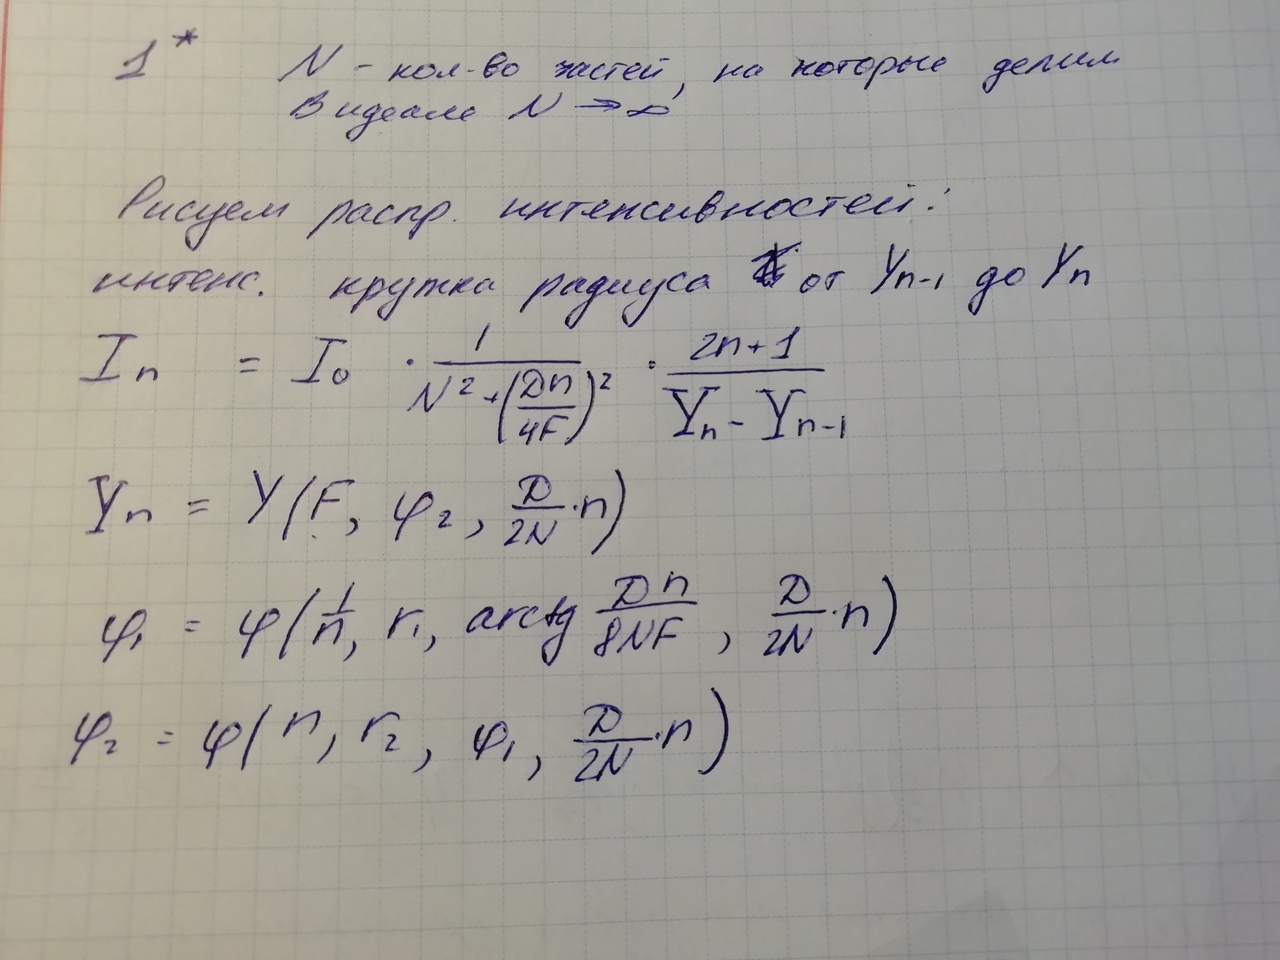 1*   N - кол-во частей, на которые делим
В идеале N → ∞
Рисуем распр. интенсивностей:
интенс. кружка радиуса от Yn-1 до Yn
In = I0 · 1/(N² + (Dn/4F)²) · (2n+1)/(Yn - Yn-1)
Yn = Y(F, φ2, D/2N · n)
φ1 = φ(1/n, r1, arctg Dn/8NF, D/2N · n)
φ2 = φ(n, r2, φ1, D/2N · n)